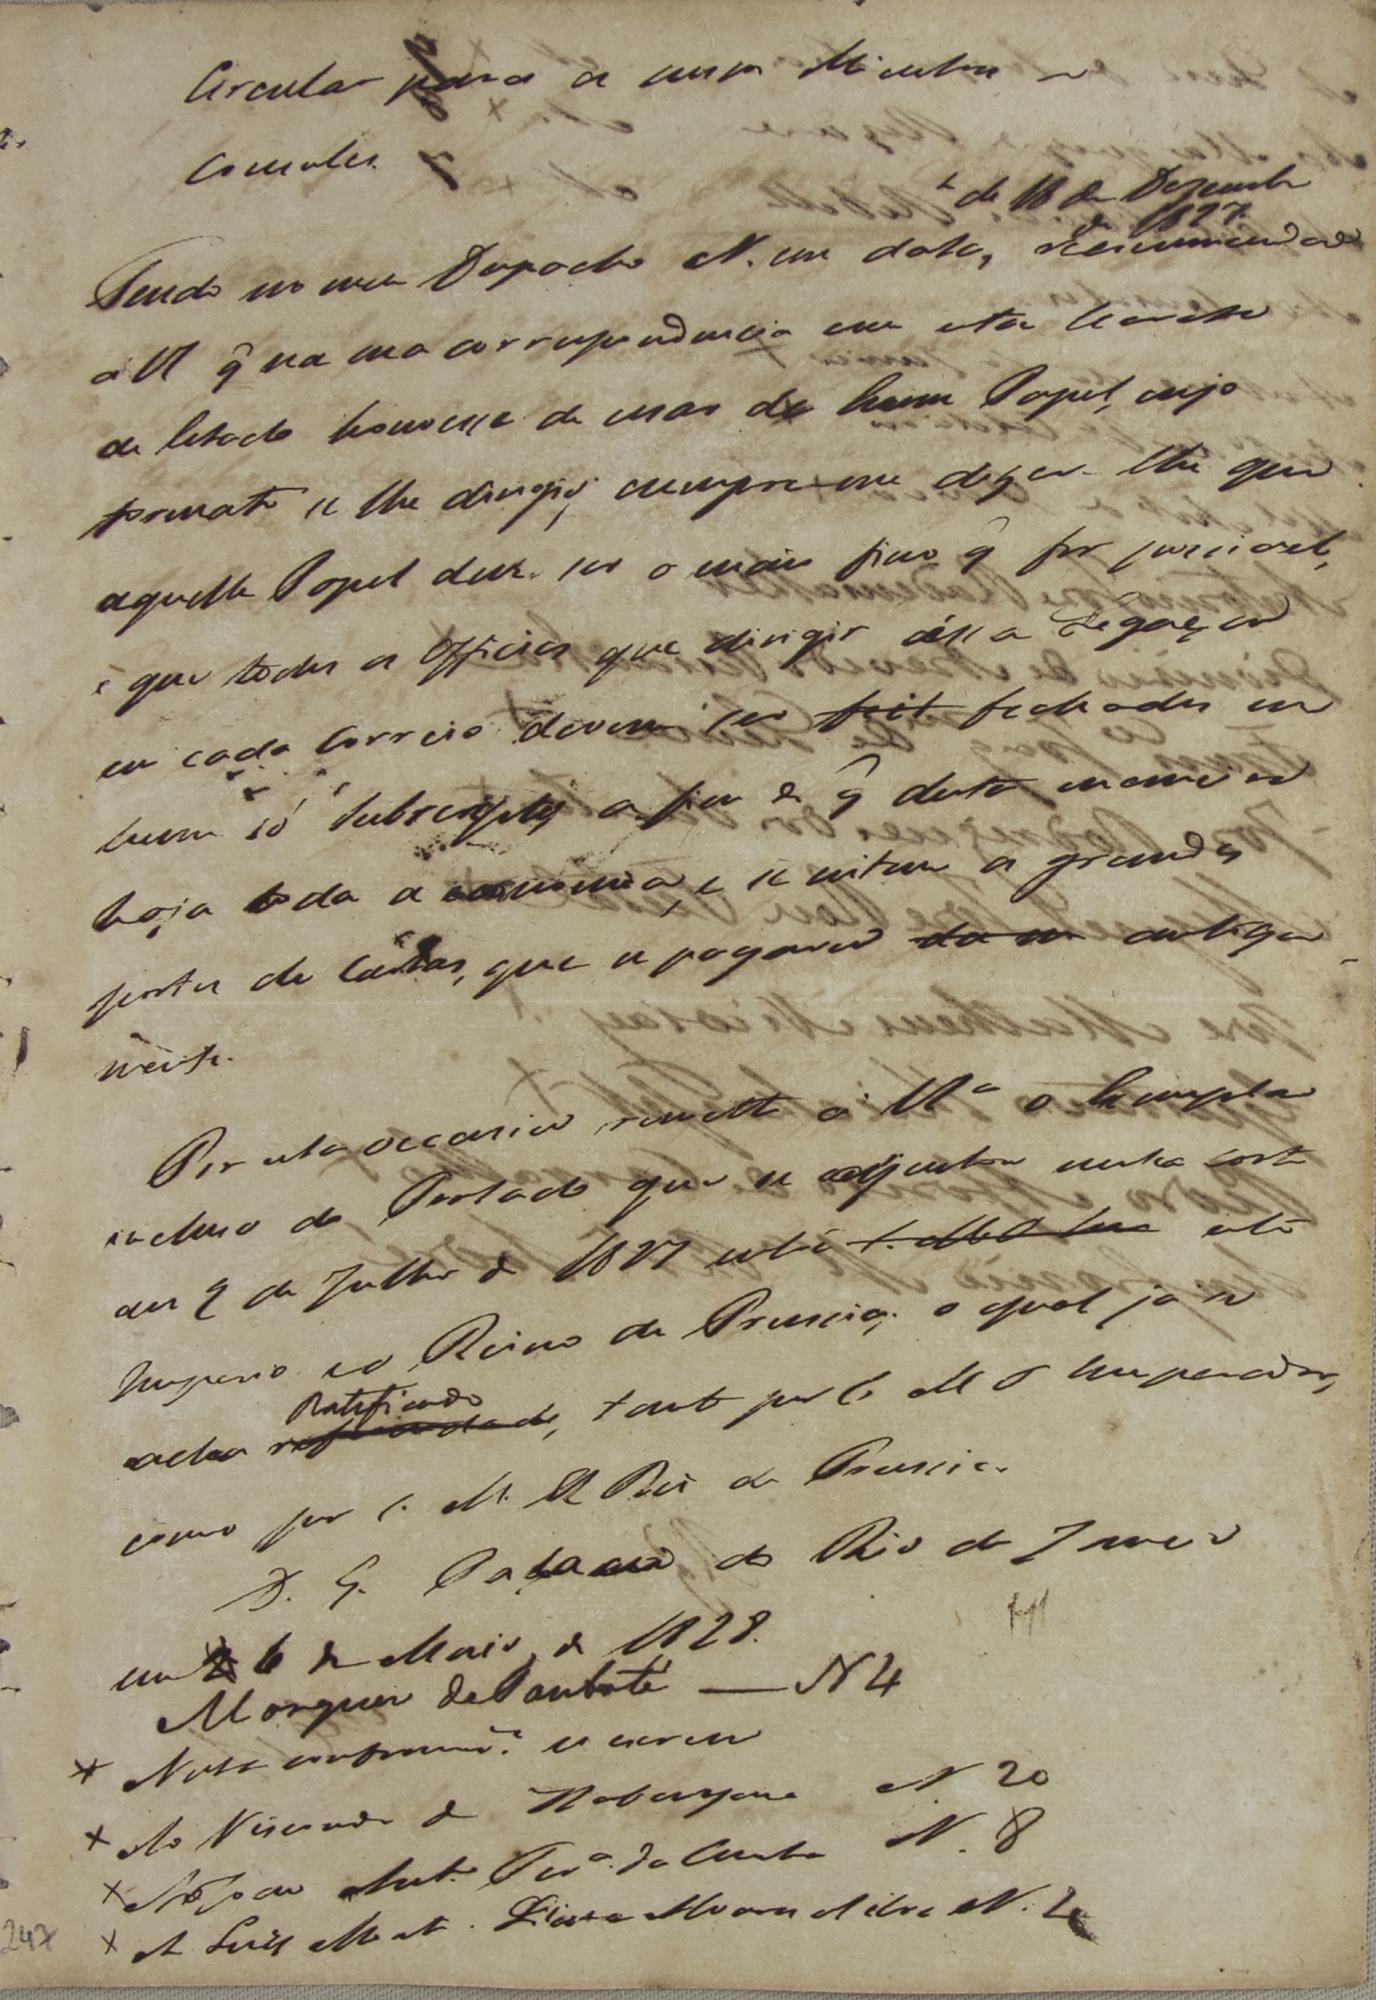 Circular para a nossos Ministros e
Consules.
de 18 de Dezembro
de 1827.
Tendo no meu Despacho N. em data, recommendado
a VS q̂ na sua correspondencia com esta Secretª
de Estado houvesse de usar de hum Papel, cujo
formato se lhe dirigio, cumpre-me dizer-lhe que
aquelle Papel deve ser o mais fino q̂ for possivel,
e que todos os Officios que dirigir a essa Legação
em cada Correio devem ser feit fechados em
hum só Subscripto, a fim de q̂ desta maneira
haja toda a economia, e se evitem os grandes
portes de Cartas, que se pagavão antiga
mente.
Por esta occasião, remetto a VSª o Exemplar
incluso do Tratado que se ajustou nesta Corte
aos 9 de Julho de 1827 entre este
Imperio e o Reino de Prussia, o qual já se
Ratificado
acha, tanto por S. M. O Imperador,
como por S. M. El Rei de Prussia.
D. G. Palacio do Rio de Janeiro
em 6 de Maio de 1828.
Marquez de Aracaty — N 4
Nesta conformide. se escreveo
Ao Visconde de Itabayana N. 20
A João Antº. Perª. da Cunha N. 8
A Luis Mat. Alvares e Silva N. 2
247